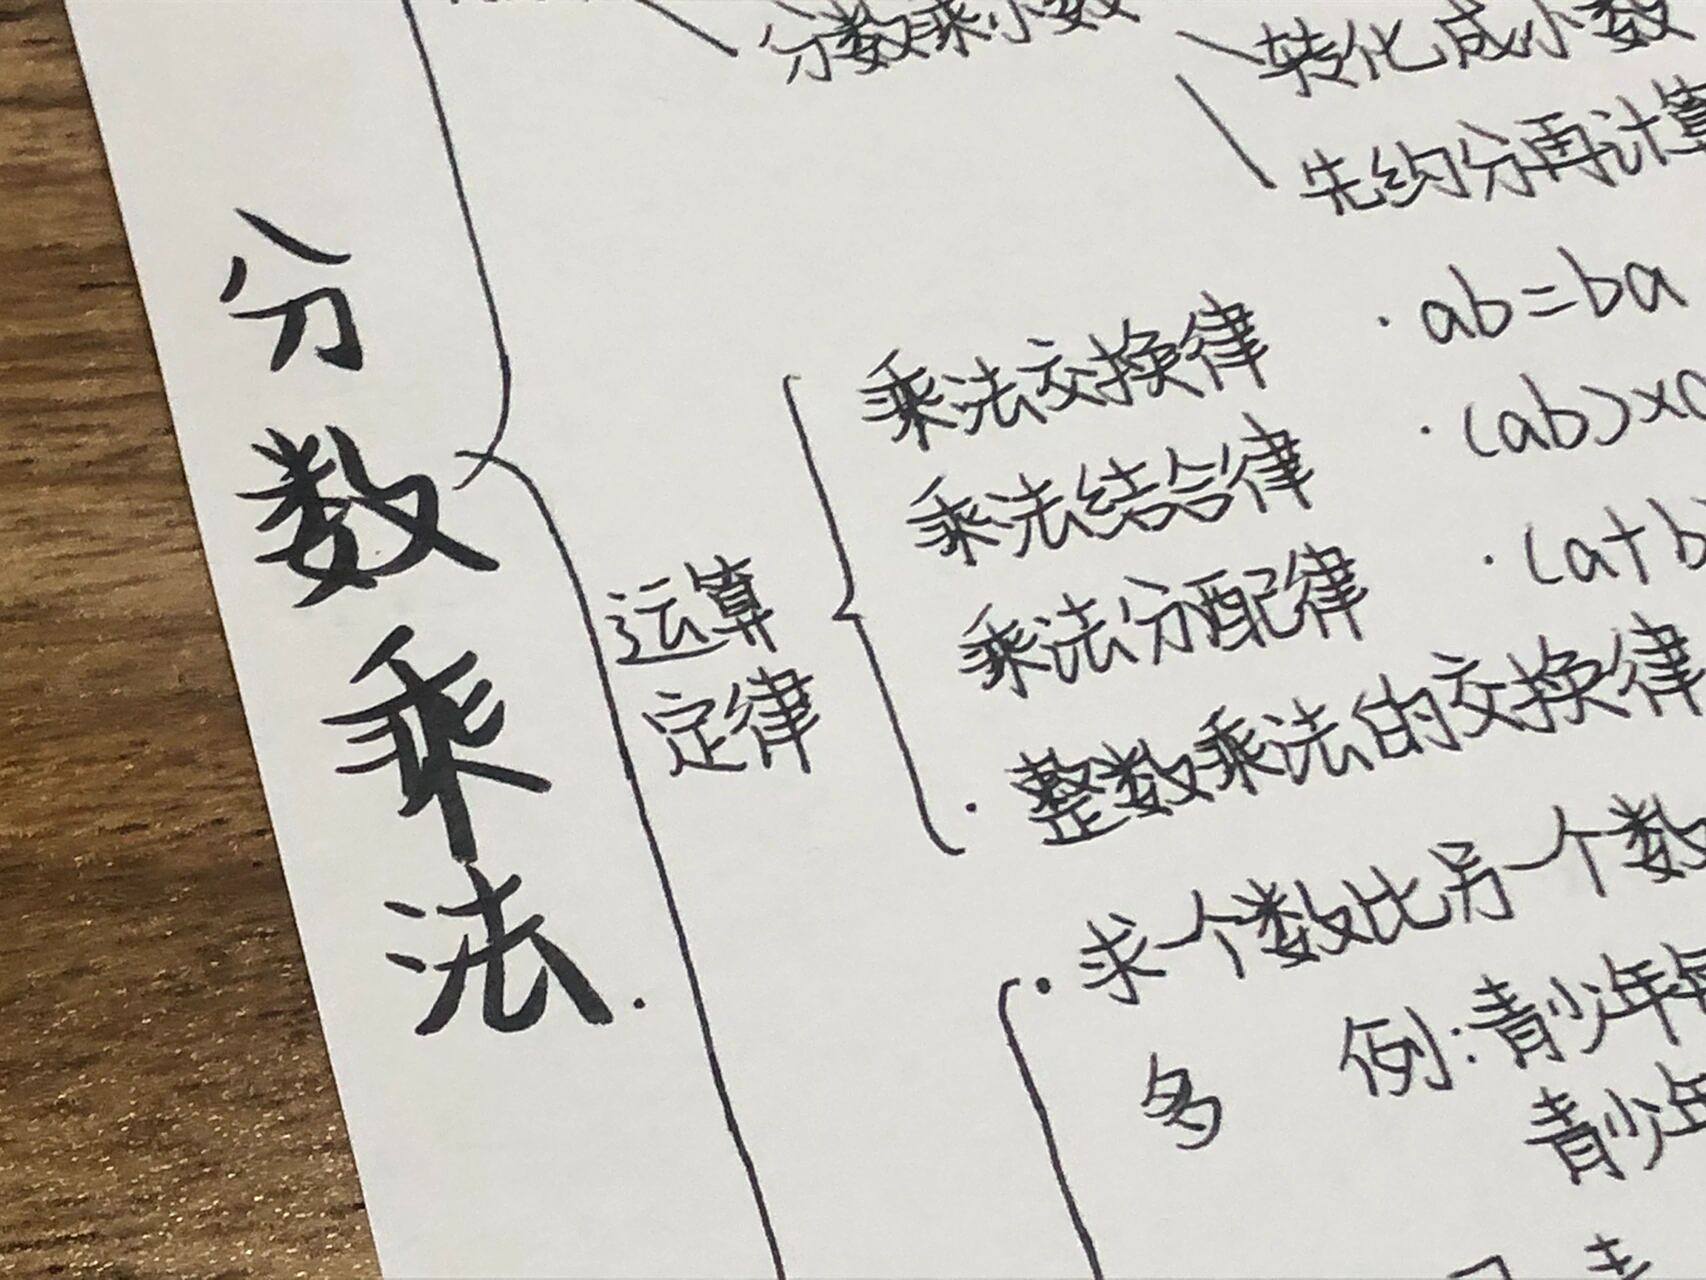 分数乘小数
转化成小数
先约分再计算
分数乘法
运算定律
乘法交换律 · ab=ba
乘法结合律 · (ab)×
乘法分配律 · (a+b
· 整数乘法的交换律
· 求一个数比另一个数
多 例:青少年每
青少年